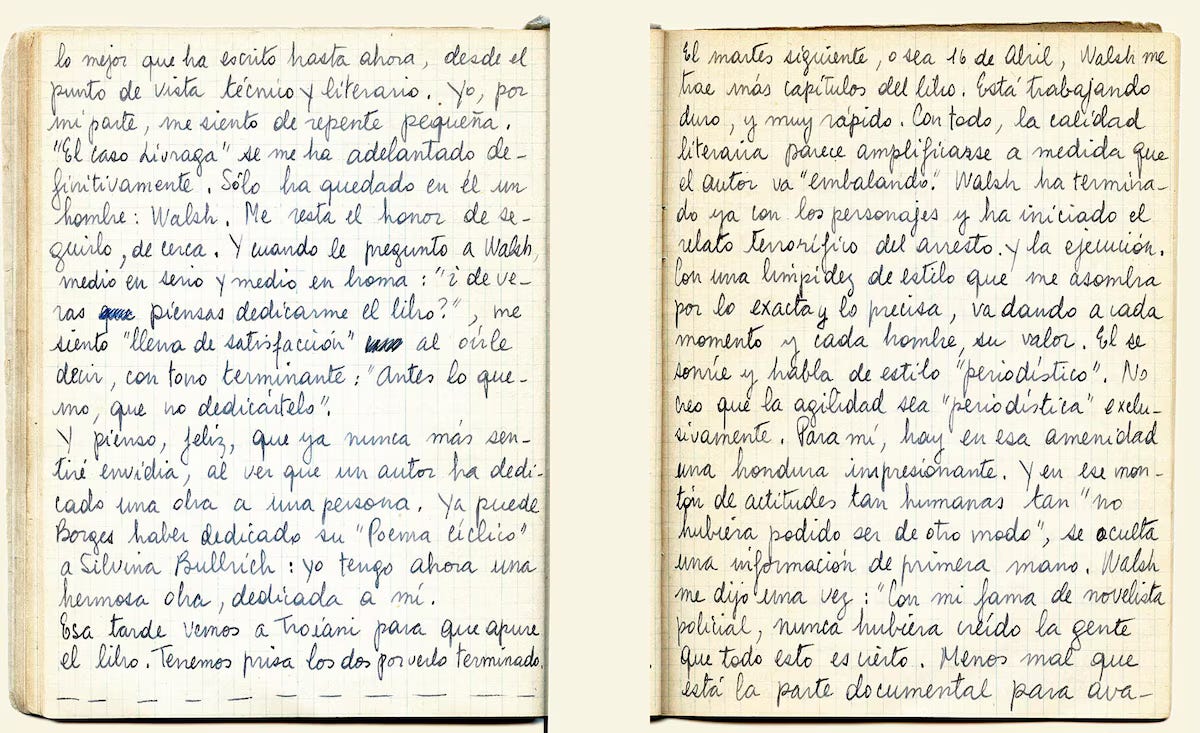 lo mejor que ha escrito hasta ahora, desde el
punto de vista técnico y literario. Yo, por
mi parte, me siento de repente pequeña.
"El caso Livraga" se me ha adelantado de-
finitivamente. Sólo ha quedado en él un
hombre: Walsh. Me resta el honor de se-
guirlo, de cerca. Y cuando le pregunto a Walsh,
medio en serio y medio en broma: "¿ de ve-
ras piensas dedicarme el libro?", me
siento "llena de satisfacción" al oírle
decir, con tono terminante: "Antes lo que-
mo, que no dedicártelo".
Y pienso, feliz, que ya nunca más sen-
tiré envidia, al ver que un autor ha dedi-
cado una obra a una persona. Ya puede
Borges haber dedicado su "Poema cíclico"
a Silvina Bullrich: yo tengo ahora una
hermosa obra, dedicada a mí.
Esa tarde vemos a Troiani para que apure
el libro. Tenemos prisa los dos por verlo terminado.
El martes siguiente, o sea 16 de Abril, Walsh me
trae más capítulos del libro. Está trabajando
duro, y muy rápido. Con todo, la calidad
literaria parece amplificarse a medida que
el autor va "embalando." Walsh ha termina-
do ya con los personajes y ha iniciado el
relato terrorífico del arresto. y la ejecución.
Con una limpidez de estilo que me asombra
por lo exacta y lo precisa, va dando a cada
momento y cada hombre, su valor. El se
sonríe y habla de estilo "periodístico". No
creo que la agilidad sea "periodística" exclu-
sivamente. Para mí, hay en esa amenidad
una hondura impresionante. Y en ese mon-
tón de actitudes tan humanas tan "no
hubiera podido ser de otro modo", se oculta
una información de primera mano. Walsh
me dijo una vez: "Con mi fama de novelista
policial, nunca hubiera creído la gente
que todo esto es cierto. Menos mal que
está la parte documental para ava-